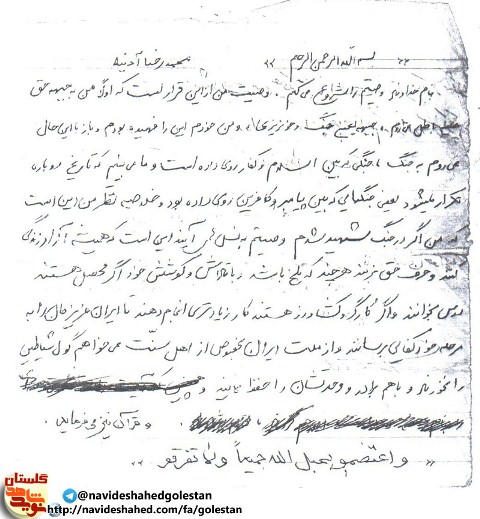 بسم الله الرحمن الرحیم محمد رضا آدینه
بنام خداوند وصیتم را شروع می کنم. وصیت من از این قرار است که اولاً من به جبهه حق
علیه باطل می روم و جبهه یعنی جنگ و خونریزی و من خودم این را فهمیده بودم و باز با این حال
می روم به جنگ با جنگی که بین اسلام و کفار روی داده است و ما می بینیم که تاریخ دوباره
تکرار میشود یعنی جنگهایی که بین پیامبر و کافرین روی داده بود و خلاصه نظر من این است
که من اگر در جنگ شهید شدم وصیتم به نسل آینده این است که همیشه آزاد زندگی
کنند و حرف حق بزنند هرچند که تلخ باشد و با تلاش و کوشش خود اگر محصل هستند
درس بخوانند و اگر کارگر و کشاورز هستند کار زیادتری انجام دهند تا ایران عزیزمان را به
مرحله خودکفایی برسانند و از ملت ایران بخصوص از اهل سنت می خواهم گول شیاطین
را نخورند و باهم برادر و وحدتشان را حفظ نمایند و
و قرآن نیز می فرماید.
و اعتصمو بحبل الله جمیعاً ولا تفرقو
گلستان
نوید شاهد
@navideshahedgolestan
http://navideshahed.com/fa/golestan